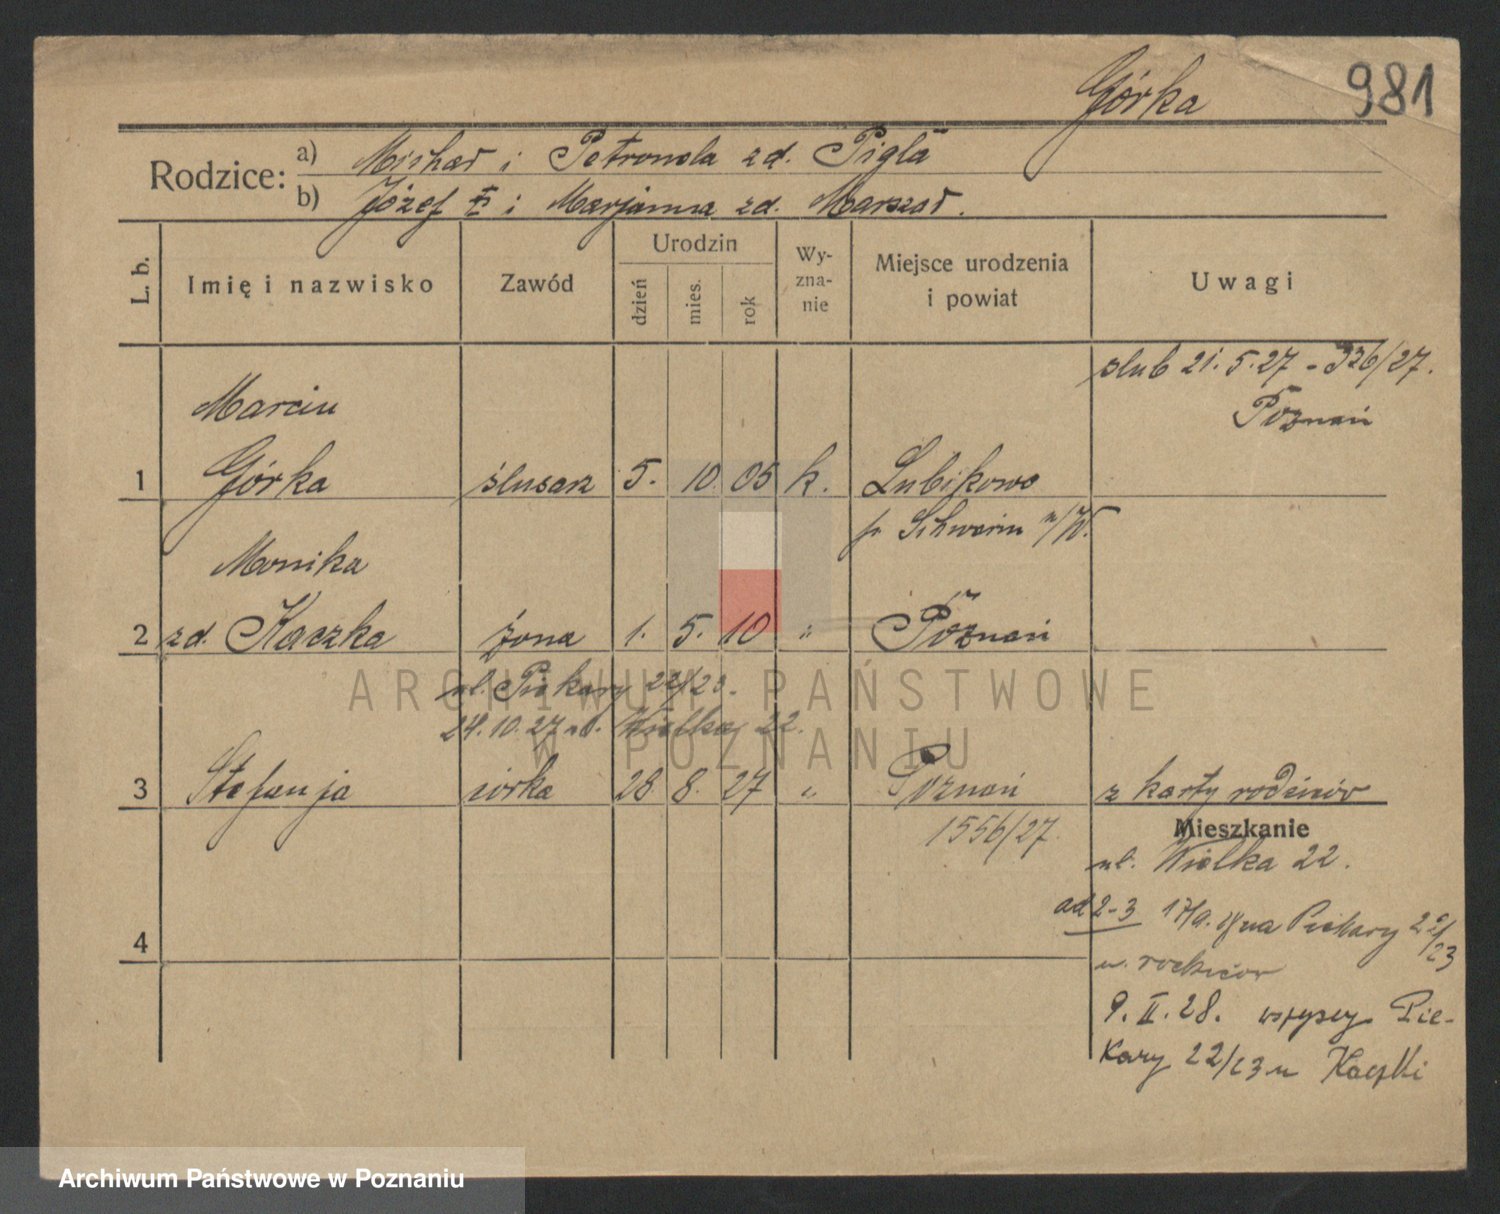 Górka 981
Rodzice: a) Michał i Petronela zd. Pigla
b) Józef i Marjanna zd. Marszał.
L. b. Imię i nazwisko Zawód Urodzin dzień mies. rok Wy-zna-nie Miejsce urodzenia i powiat Uwagi
ślub 21.5.27 - 326/27.
Poznań
Marcin
1 Górka ślusarz 5. 10 05 k. Lubikowo
p. Schwerin a/W.
Monika
2 zd. Kaczka żona 1. 5. 10 " Poznań
ul. Piekary 22/23.
24.10.27 ul. Wielka 22.
3 Stefanja córka 28 8. 27 " Poznań z karty rodziców
1556/27
Mieszkanie
ul. Wielka 22.
ad 2-3 na Piekary 22/23
u. rodziców
4
9. II. 28. wszyscy Pie-
kary 22/23 u Kaczki
ARCHIWUM PAŃSTWOWE
W POZNANIU
Archiwum Państwowe w Poznaniu